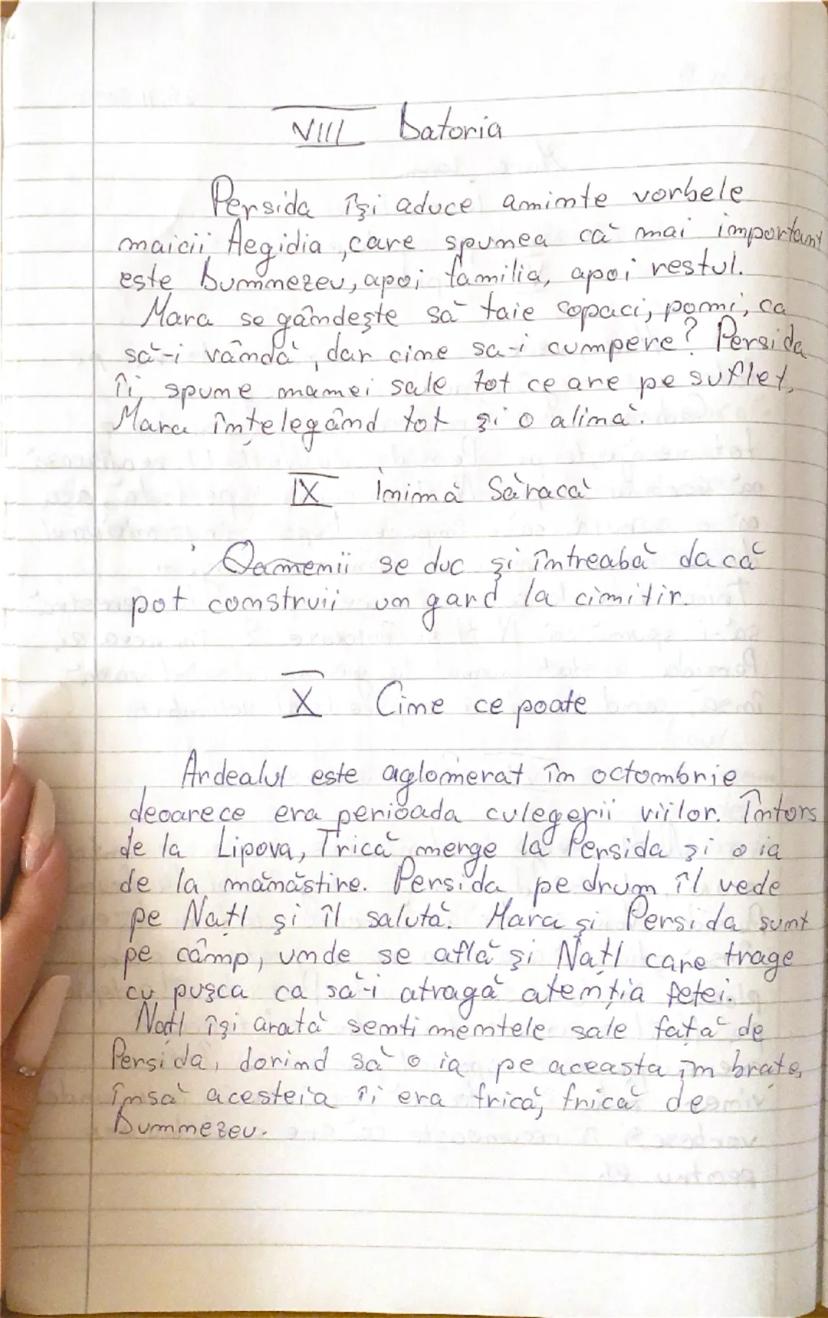 VIII Datoria
Persida își aduce aminte vorbele
maicii Aegidia, care spunea că mai important
este Dummezeu, apoi familia, apoi restul.
Mara se gândește să taie copaci, pomi, ca
să-i vândă, dar cine sa-i cumpere? Persida
îi spune mamei sale tot ce are pe suflet,
Mara înțelegând tot și o alină.
IX Inimă Săracă
Oamenii se duc și întreabă dacă
pot construii un gard la cimitir.
X Cine ce poate
Ardealul este aglomerat în octombrie
deoarece era perioada culegerii viilor. Întors
de la Lipova, Trică merge la Persida și o ia
de la mănăstire. Persida pe drum îl vede
pe Națl și îl salută. Mara și Persida sunt
pe câmp, unde se află și Națl care trage
cu pușca ca să-i atragă atenția fetei.
Națl își arată sentimentele sale față de
Persida, dorind să o ia pe aceasta în brațe,
însă acesteia îi era frică, frică de
Dummezeu.